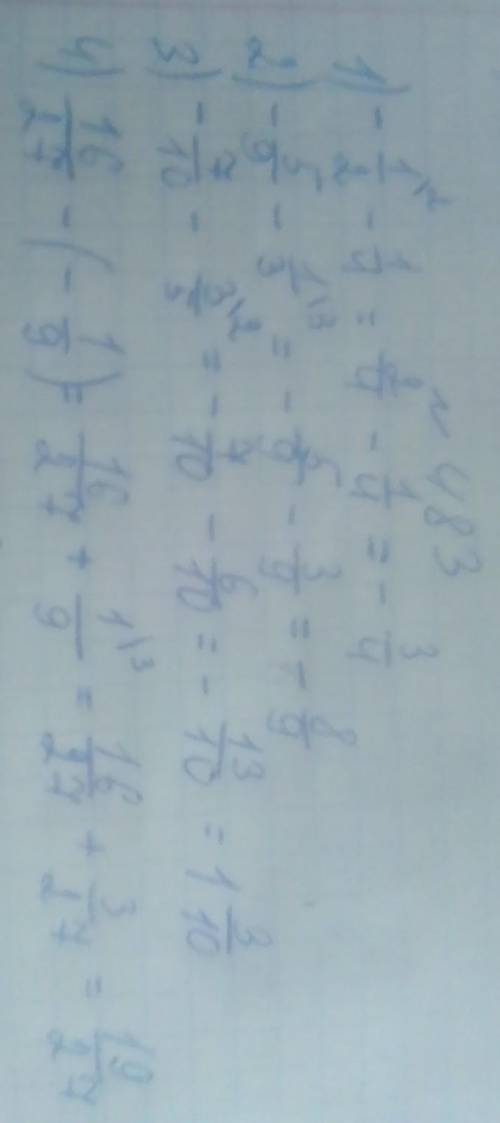 № 483
1) - 1/2\2 - 1/4 = 2/4 - 1/4 = - 3/4
2) - 5/9 - 1/3\3 = - 5/9 - 3/9 = - 8/9
3) - 7/10 - 3/5\2 = - 7/10 - 6/10 = - 13/10 = 1 3/10
4) 16/27 - (- 1/9) = 16/27 + 1/9\3 = 16/27 + 3/27 = 19/27